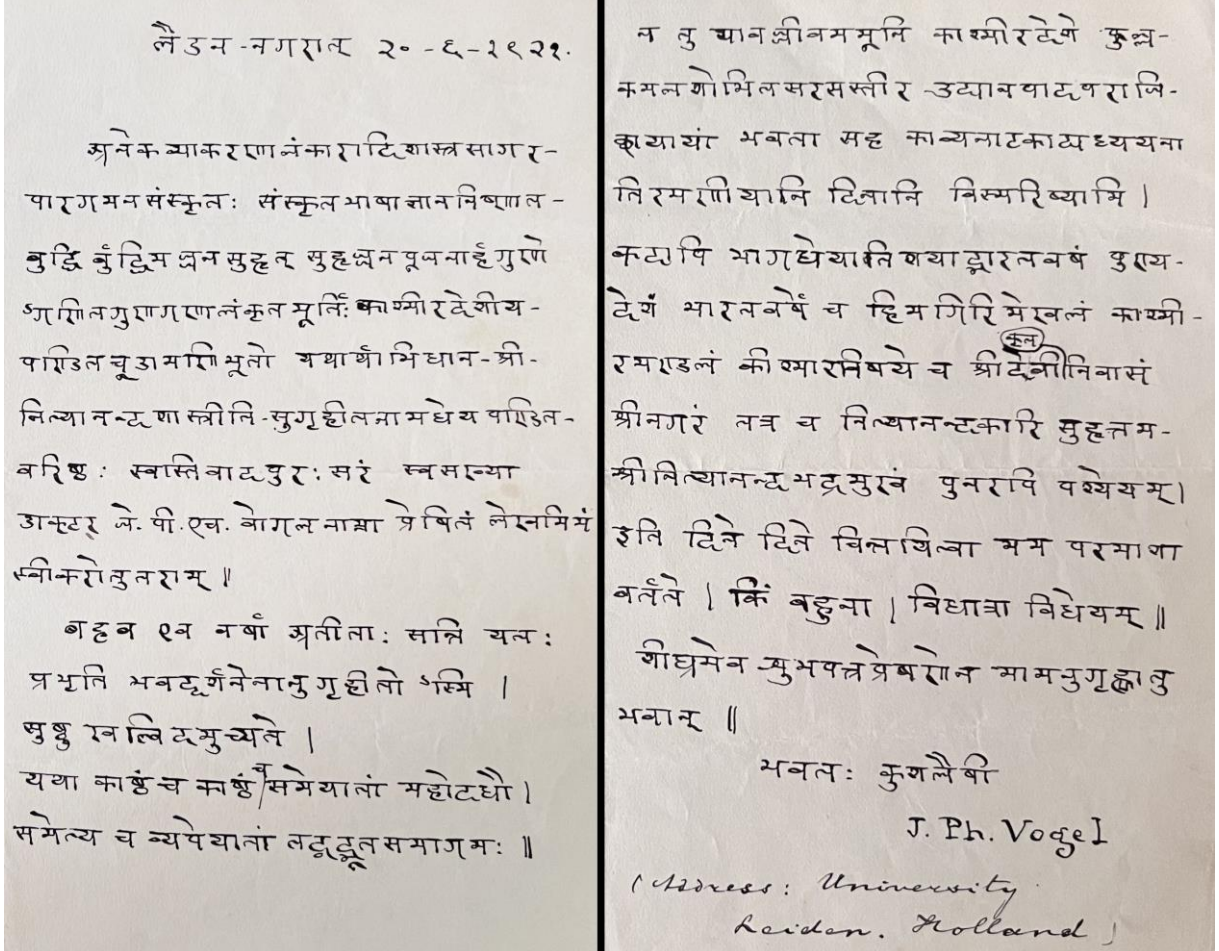 लैडन-नगरात् २०-६-१९२१.
अनेकव्याकरणालंकारादिशास्त्रसागर-
पारगमनसंस्कृतः संस्कृतभाषाज्ञाननिष्णात-
बुद्धि र्बुद्धिमज्जनसुहृत् सुहृज्जनपूजनार्हगुणो
ऽगणितगुणगणालंकृतमूर्तिः काश्मीरदेशीय-
पण्डितचूडामणिभूतो यथार्थाभिधान-श्री-
नित्यानन्दशास्त्रीति-सुगृहीतनामधेय पण्डित-
वरिष्ठः स्वस्तिवादपुरःसरं स्वसख्या
डाक्टर् जे. पी. एच. वोगलनाम्ना प्रेषितं लेखमिमं
स्वीकरोतुतराम् ॥
बहव एव वर्षा अतीताः सन्ति यतः
प्रभृति भवद्दर्शनेनानुगृहीतो ऽस्मि ।
सुष्ठु खल्विदमुच्यते ।
यथा काष्ठं च काष्ठं च समेयातां महोदधौ ।
समेत्य च व्यपेयातां तद्वद्भूतसमागमः ॥
न तु यावज्जीवममूनि काश्मीरदेशे फुल्ल-
कमलशोभितसरसस्तीर-उद्यानपादपराजि-
छायायां भवता सह काव्यनाटकाद्यध्ययना
तिरमणीयानि दिनानि विस्मरिष्यामि ।
कदापि भागधेयातिशयाद्भारतवर्षं पुण्य-
देशं भारतवर्षे च हिमगिरिमेखलं काश्मी-
रमण्डलं कीश्मारविषये च श्रीदेवीकुलनिवासं
श्रीनगरं तत्र च नित्यानन्दकारि सुहृत्तम-
श्रीनित्यानन्दभद्रमुखं पुनरपि पश्येयम्।
इति दिने दिने चिन्तयित्वा मम परमाशा
वर्तते । किं बहुना । विधात्रा विधेयम् ॥
शीघ्रमेव शुभपत्त्रप्रेषणेन मामनुगृह्णातु
भवान् ॥
भवतः कुशलैषी
J. Ph. Vogel
(Address: University
Leiden. Holland)